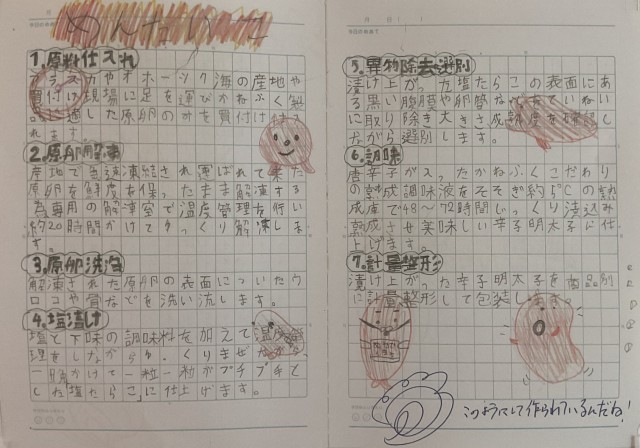 めんたいこ
1.原料仕入れ
アラスカやオホーツク海の産地や
買付け現場に足を運びかねふく製
法に適した原卵のみを買付け仕入
れます。
2.原卵解凍
産地で急速凍結され運ばれて来た
原卵を鮮度を保ったまま解凍する
為専用の解凍室で温度管理を行い
約20時間かけてゆっくり解凍しま
す。
3.原卵洗浄
解凍された原卵の表面についたウ
ロコや貝などを洗い流します。
4.塩漬け
塩と下味の調味料を加えて温度管
理をしながらゆっくりませながら
一晩かけて一粒一粒がプチプチと
した塩たらこに仕上げます。
5.異物除去選別
漬け上がった塩たらこの表面にあ
る黒い腹膜や卵管など
に取り除き大きさ、成熟度を確認し
ながら選別します。
6.調味
唐辛子が入ったかねふくこだわり
の熟成調味液をそそぎ約1℃の熟
成庫で48〜72時間じっくり漬込み
熟成させ美味しい辛子明太子に仕
上げます。
7.計量整形
漬け上がった辛子明太子を商品別
に計量整形して包装します。
このようにして作られているんだね!